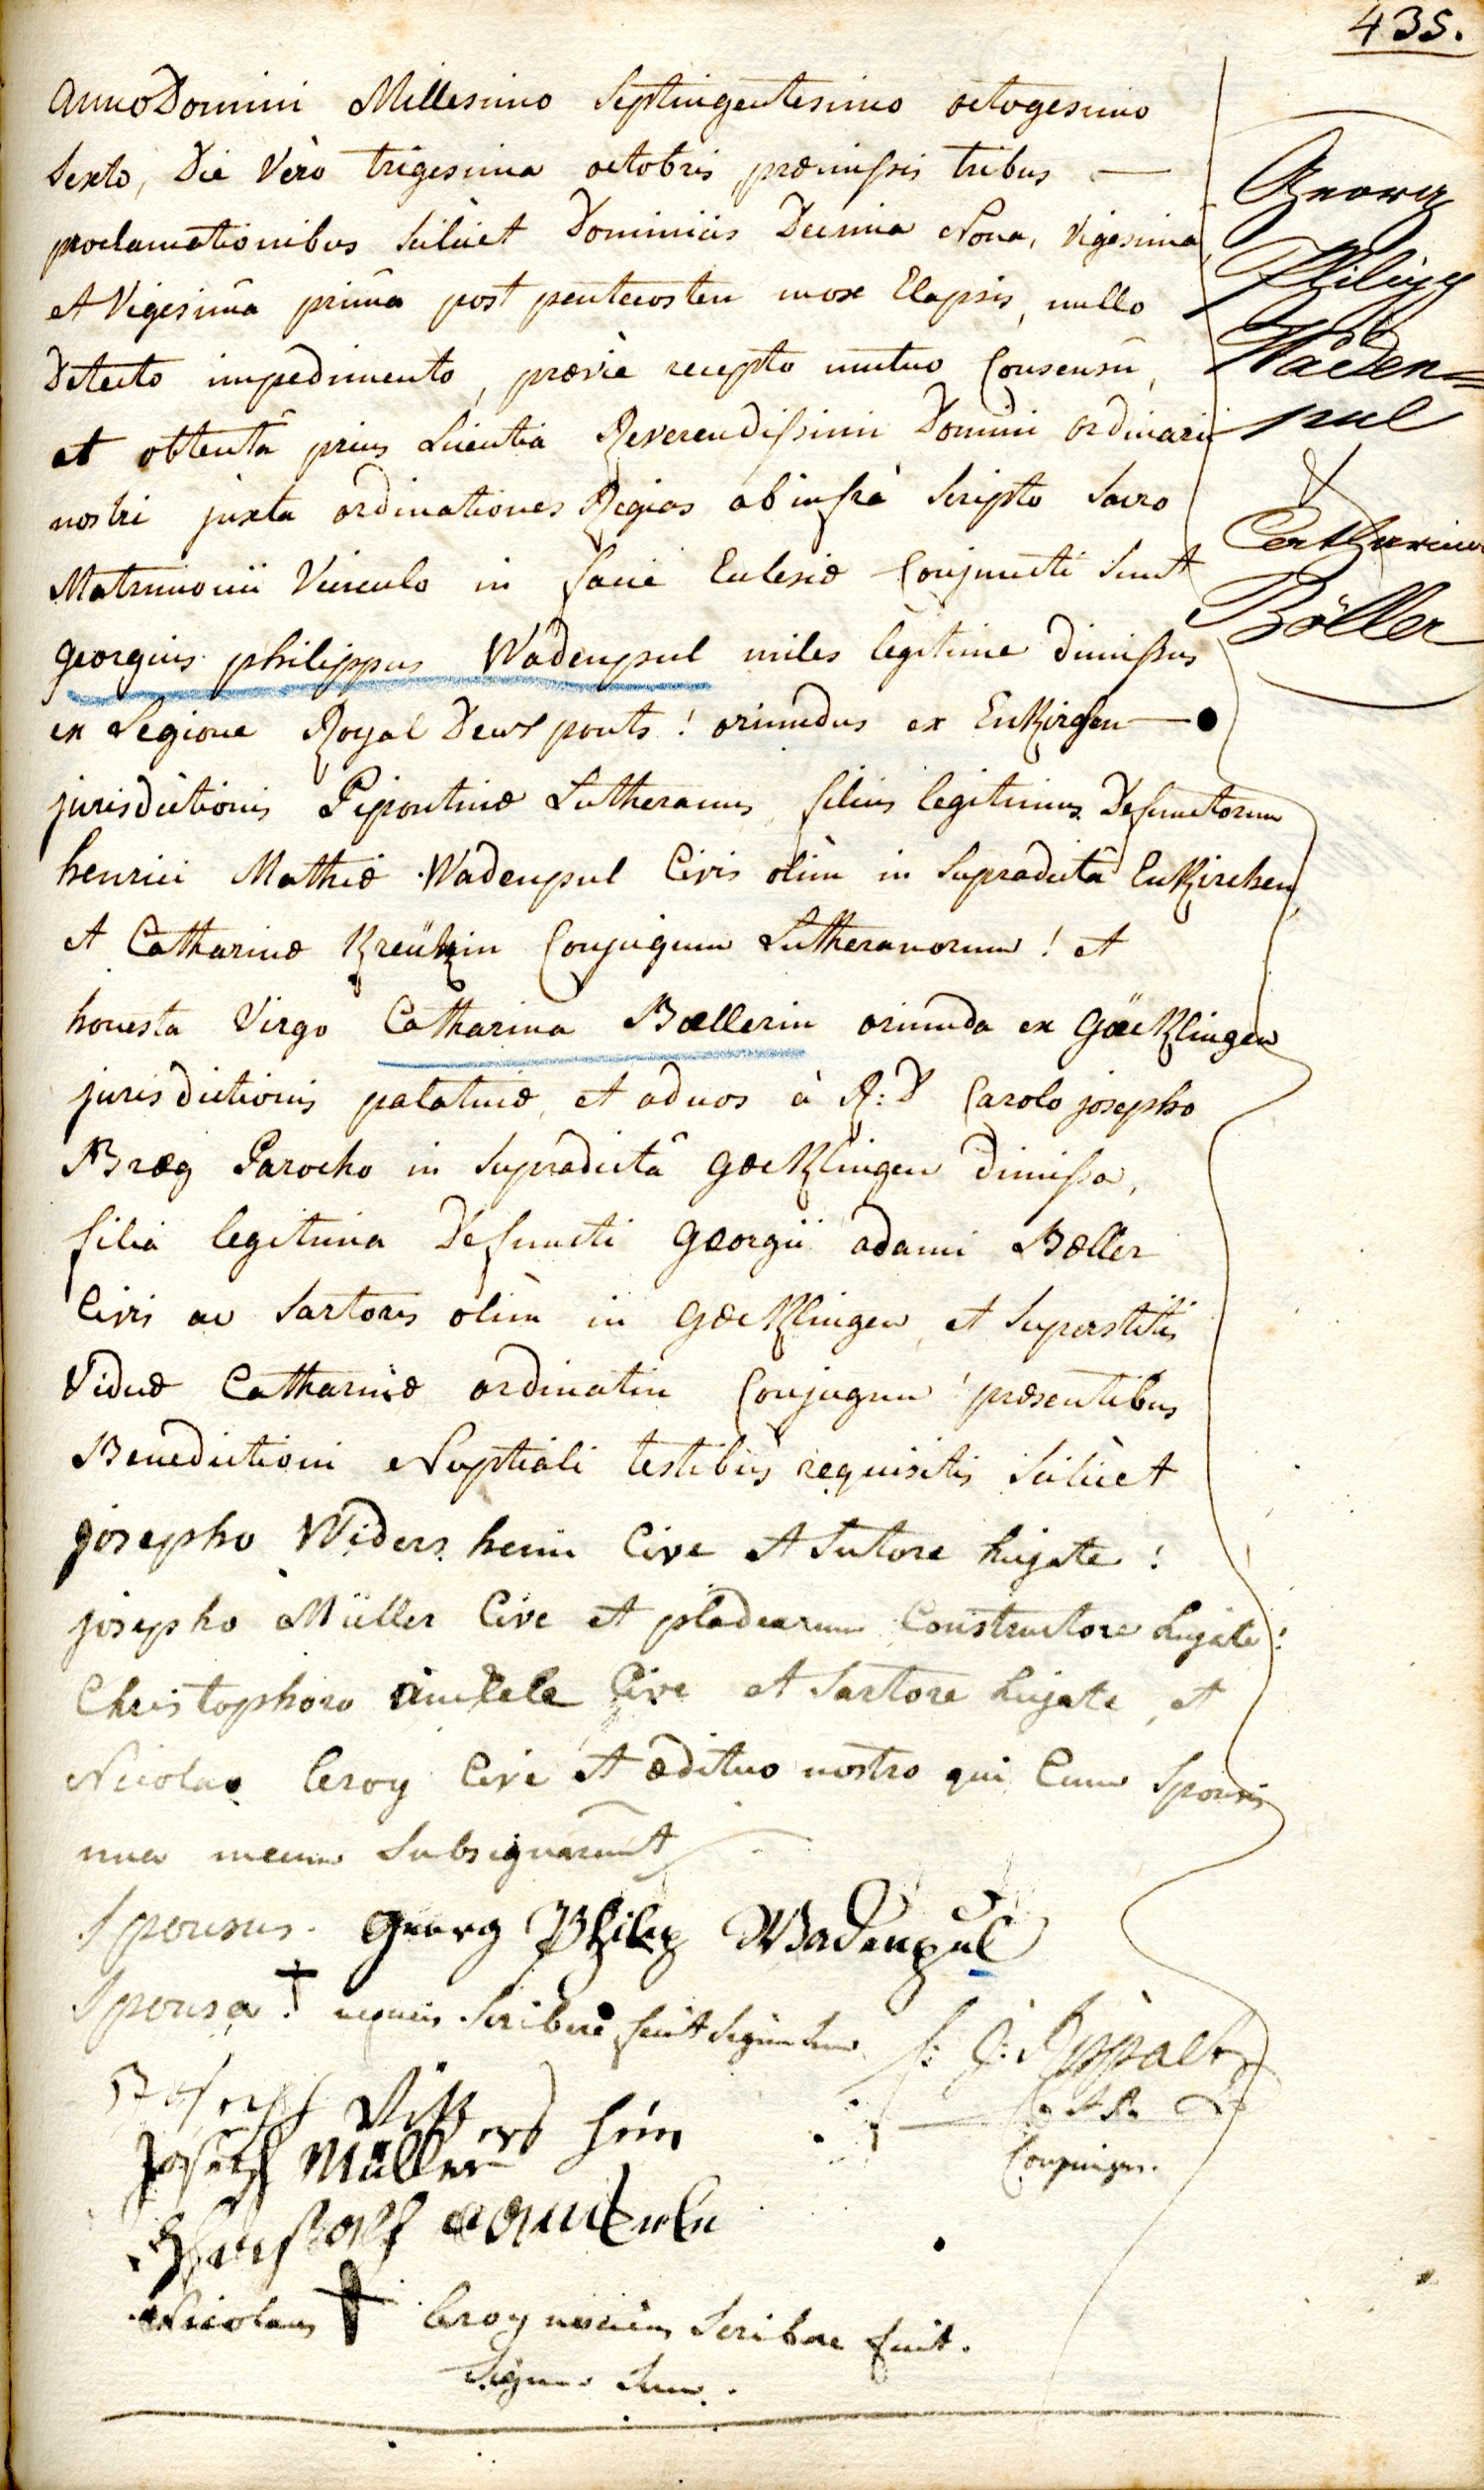 435.
Anno Domini Millesimo Septingentesimo octogesimo
Sexto, Die Verò trigesima octobris præmissis tribus —
proclamationibus Scilicet Dominicis Decima Nona, Vigesima
et Vigesimâ primâ post pentecosten mox Elapsis, nullo
Detecto impedimento, præviè recepto mutuo Consensû,
et obtentâ prius Licentiâ Reverendissimi Domini ordinarii
nostri juxta ordinationes Regias ab infrà Scripto Sacro
Matrimonii Vinculo in facie Ecclesiæ Conjuncti Sunt
georgius philippus Wadenpul miles legitime dimissus
ex Legione Royal Deux ponts! oriundus ex Enkirchen —
jurisdictionis Bipontinæ Lutheranus, filius legitimus Defunctorum
henrici Mathiæ Wadenpul Civis olim in Supradictâ Enkirchen,
et Catharinæ Kreützin Conjugum Lutheranorum! et
honesta Virgo Catharina Bœllerin oriunda ex Gäcklingen
jurisdictionis palatinæ, et ad nos à R: D Carolo josepho
Bræg Parocho in Supradictâ gœcklingen dimissa,
filia legitima Defuncti georgii adami Bœller
Civis ac Sartoris olim in gœcklingen, et Superstitis
Viduæ Catharinæ ordinatin Conjugum! præsentibus
Benedictioni Nuptiali testibus requisitis Scilicet
josepho Widers heim Cive et Sutore hujate!
josepho Müller Cive et pladearum Constructore hujate!
Christophoro Cive et Sartore hujate, et
Nicolao leroy Cive et ædituo nostro qui Cum Sponsis
una mecum Subsignarunt
Georg
Philipp
Waden=
pul
&
Catharina
Böller
Sponsus. Georg Philip Wadenpul
Sponsa † nesciens Scribere fecit Signum Suum
Joseph heim
Joseph Müller
Nicolaus † leroy nesciens Scribere fecit.
Signum Suum.